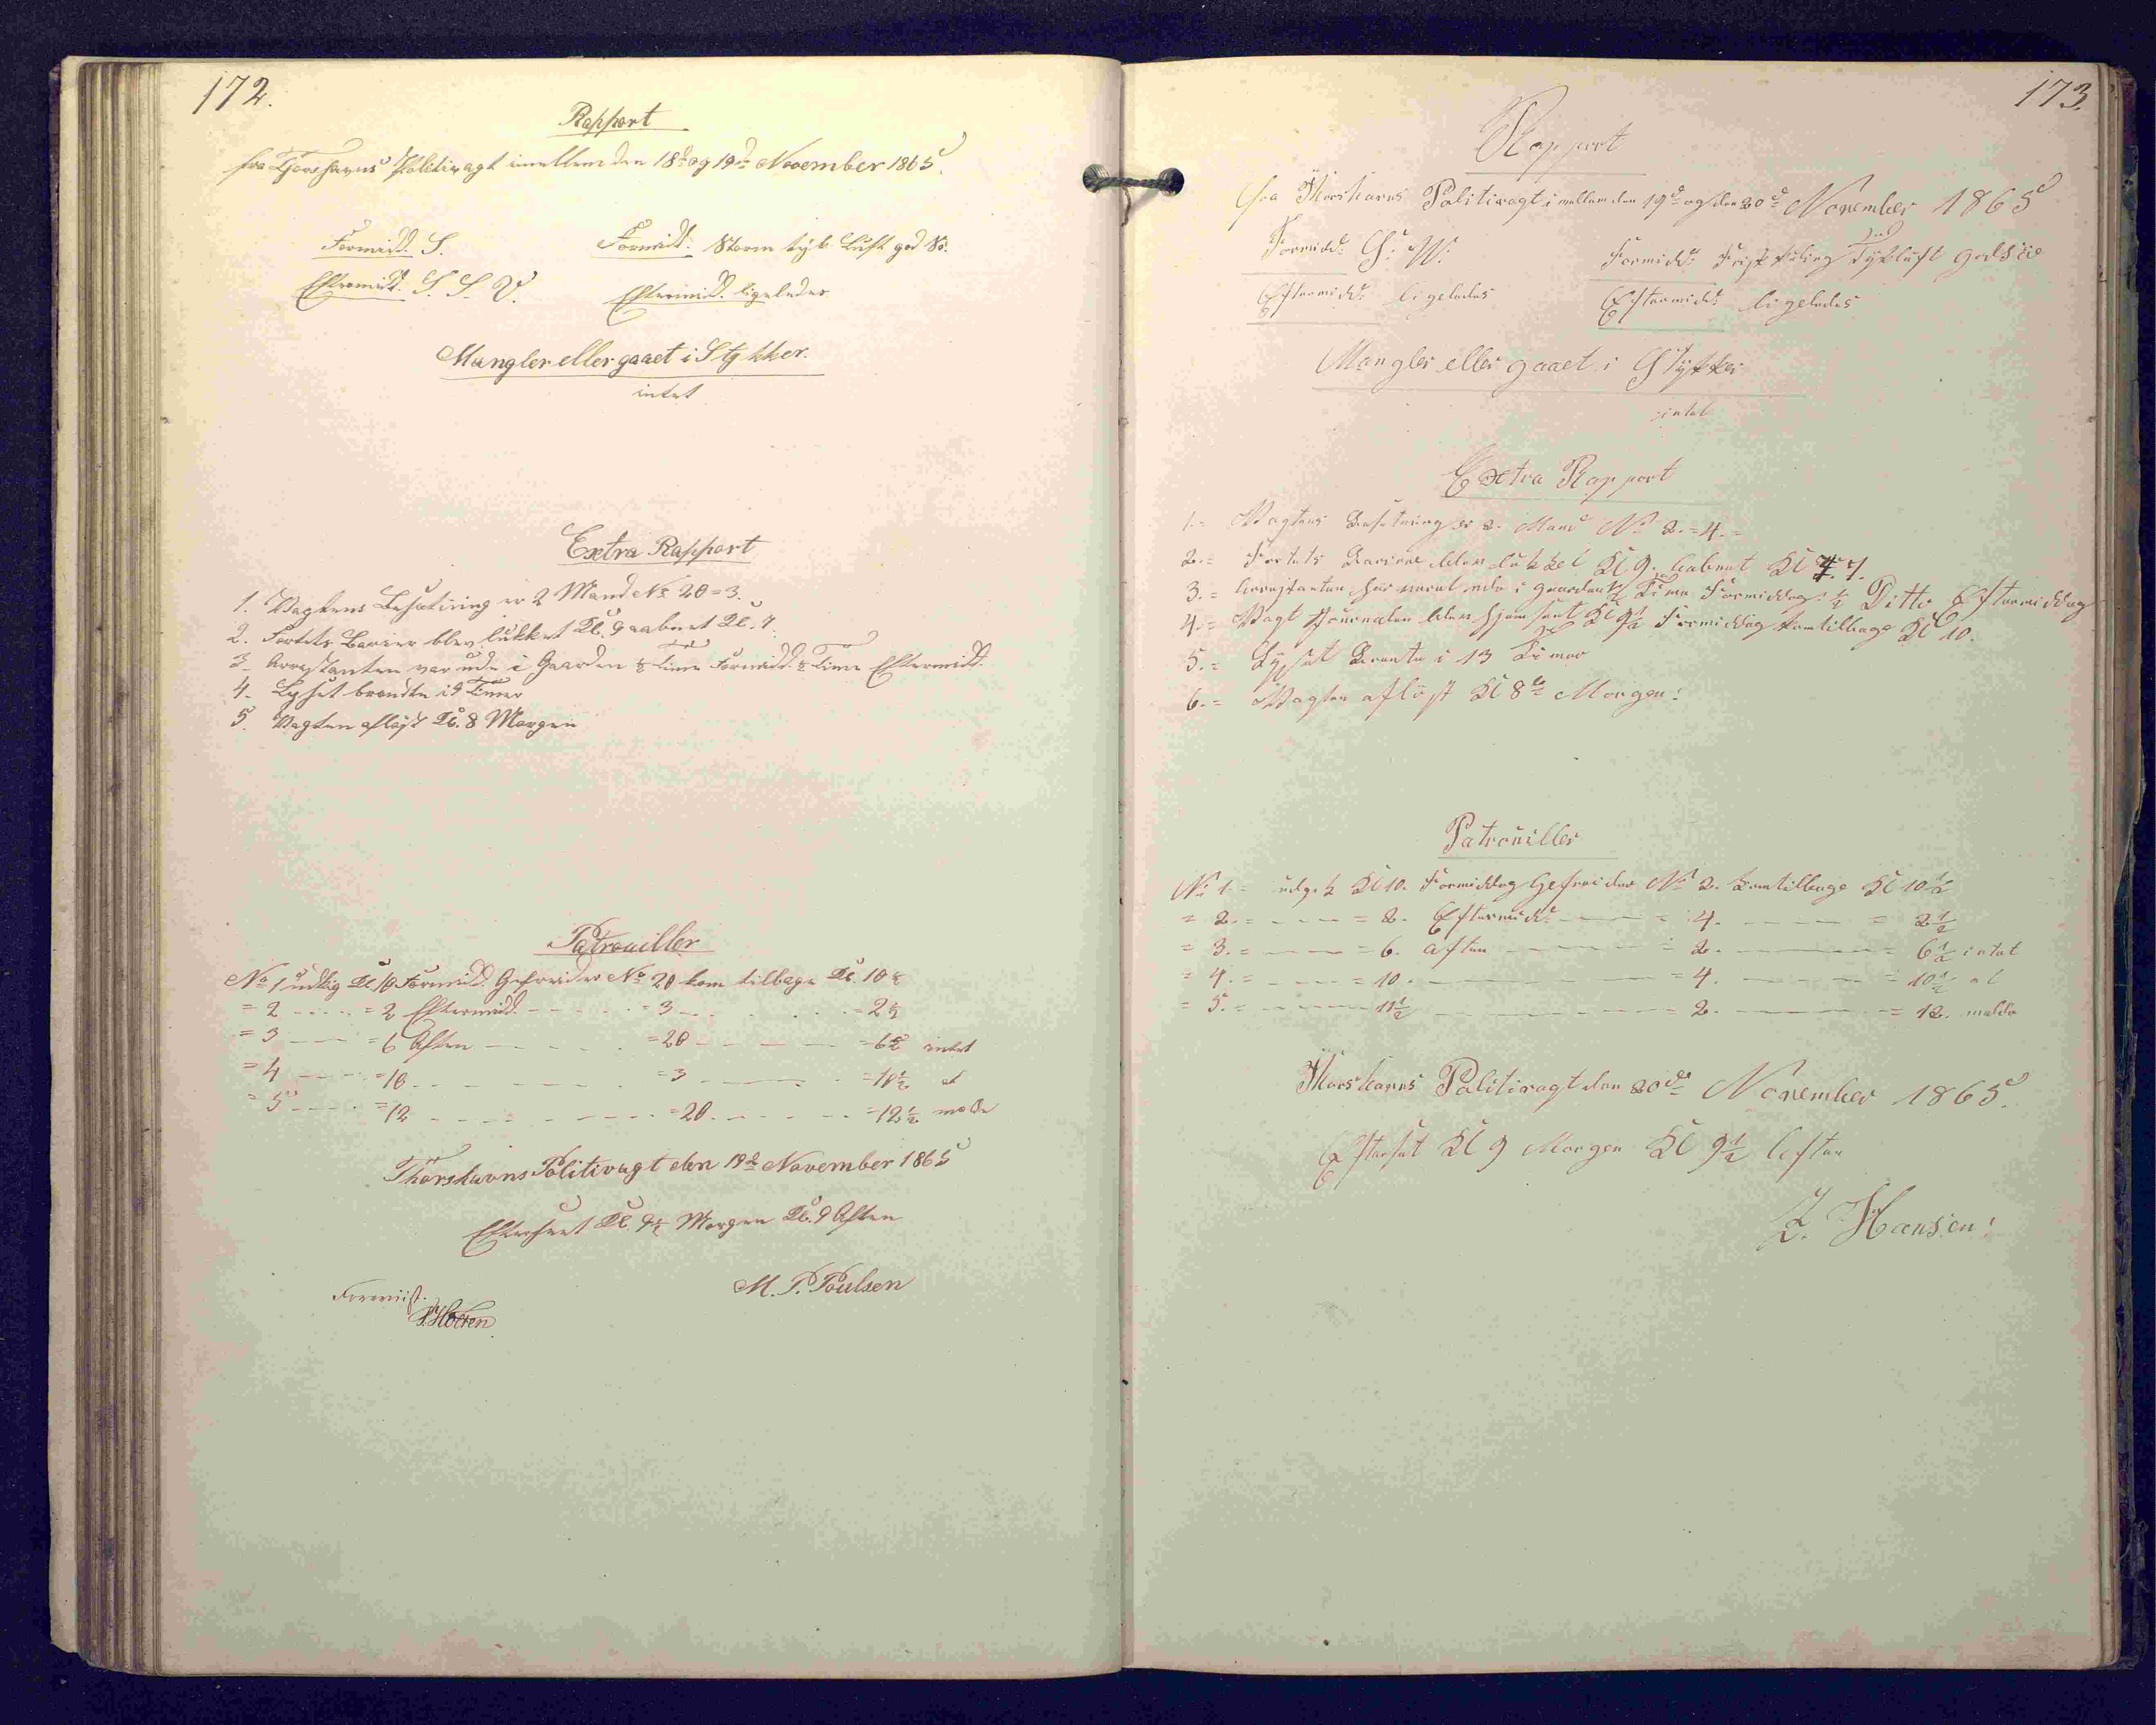 172.
Rapport
fra Thorshavns Politivagt imellem den 18de og 19de November 1865.
Formidd. S. Formidd. Storm tyk Luft god Sö.
Eftermidd. S. S. V. Eftermidd. ligeledes
Mangler eller gaaet i Stykker.
intet
Extra Rapport
1. Vagtens Besætning er 2 Mand No 20 = 3.
2. Fortets Barier blev lukket Kl. 9 aabnet Kl. 7.
3. Arrestanten var ude i Gaarden ½ Time Formidd. ½ Time Eftermidd.
4. Lyset brændte i 9 Timer
5. Vagten aflöst Kl. 8 Morgen
Patrouiller
No 1 udgig Kl 10 Formidd. Gefreider No 20 kom tilbage Kl. 10 ½
= 2 - - - - = 2 Eftermidd. - - - - = 3 - - . . . . = 2½
= 3 - - - = 6 Aften - - - . = 20 - - - - = 6½ intet
= 4 - - - = 10 - - - - - - = 3 - - - . = 10½ at
= 5 - - - = 12 - - - - - - = 20 - - - - = 12½ melde
Thorshavns Politivagt den 19de November 1865
Efterseet Kl. 9½ Morgen Kl. 9 Aften
M. P. Poulsen
Foreviist.
173.
Rapport
fra Thorshavns Politivagt imellem den 19de og den 20de November 1865
Formidd: S: W: Formidd: Frisk Kuling Tyk luft god Söe
Eftermidd: ligeledes Eftermidd: ligeledes
Mangler eller gaaet i Stykker
intet
Extra Rapport
1. = Vagtens Besetning er 2. Mand No 2. = 4. =
2. = Fortets Bariere blev lukket Kl 9. aabnet Kl 7.
3. = Arrestanten har været ude i gaarden ½ Time Formiddag: ½ Ditto Eftermiddag
4. = Vagt Journalen blev hjemsent Kl 9½ Formiddag kom tilbage Kl 10.
5. = Lyset Brænte i 13 Timer
6. = Vagten aflöst Kl 8te Morgen:
Patrouiller
No 1. = udgik Kl 10. Formiddag Gefreider No 2. kom tilbage Kl 10½
= 2. = - - - = 2. Eftermidd: - - - = 4. - - - = 2½
= 3. = - - - = 6. Aften - - - = 2. - - - = 6½ intet
= 4. = - - - = 10. - - - = 4. - - - = 10½ at
= 5. = - - - 11½ - - - = 2. - - - = 12. melde
Thorshavns Politivagt den 20de November 1865.
Efterset Kl 9 Morgen Kl 9½ Aften
Z. Hansen: